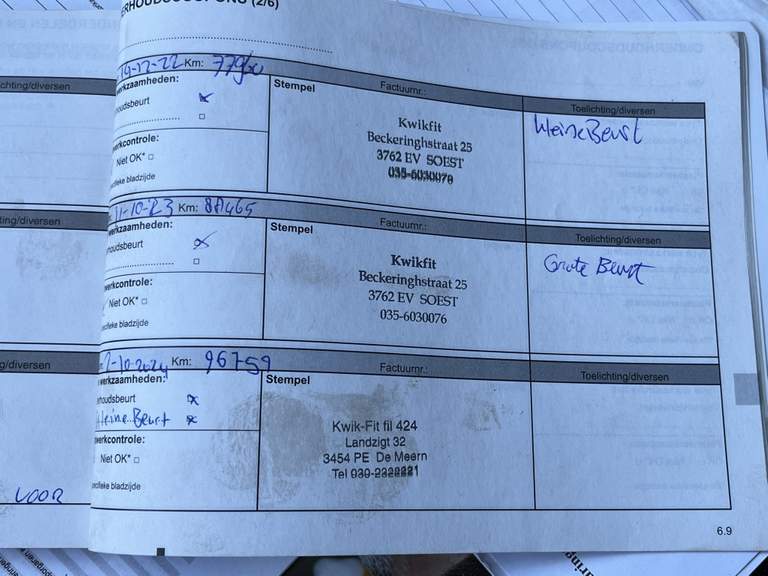 ERHOUDSCOUPONS (2/6)
chting/diversen
19-12-22 Km:
werkzaamheden:
houdsbeurt
erkcontrole:
Niet OK*
ifieke bladzijde
Stempel
Factuurnr.:
Kwikfit
Beckeringhstraat 25
3762 EV SOEST
Toelichting/diversen
kleine Beurt
ting/diversen
11-10-23 Km:
werkzaamheden:
houdsbeurt
erkcontrole:
Niet OK*
ifieke bladzijde
Stempel
Factuurnr.:
Kwikfit
Beckeringhstraat 25
3762 EV SOEST
035-6030076
Toelichting/diversen
Grote Beurt
g/diversen
2-10-2024 Km: 96759
werkzaamheden:
rhoudsbeurt
kleine Beurt
werkcontrole:
Niet OK*
ecifieke bladzijde
Stempel
Factuurnr.:
Kwik-Fit fil 424
Landzigt 32
3454 PE De Meern
Tel 030-2322221
Toelichting/diversen
VOOR
6.9